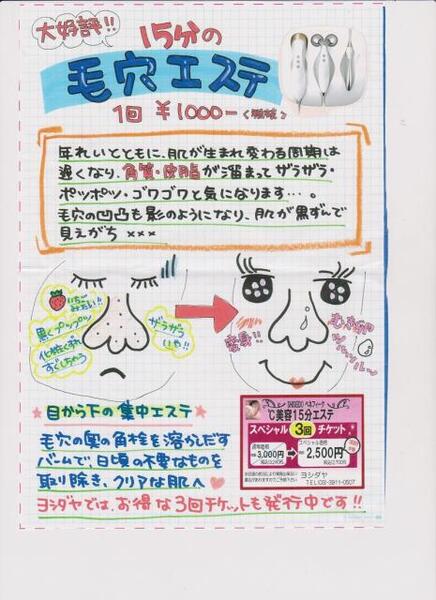 大好評!!
15分の
毛穴エステ
1回 ¥1000-(税抜)
年れいとともに、肌が生まれ変わる周期は
遅くなり、角質・皮脂が溜まってザラザラ・
ポツポツ・ゴワゴワと気になります…。
毛穴の凹凸も影のようになり、肌が黒ずんで
見えがち ×××
いちご
みたい!!
黒くプツプツ
化粧くずれ
すぐしちゃう
ザラザラ
いや!!
変身!!
むき卵
ツルッルル〜
目から下の集中エステ
毛穴の奥の角栓を溶かしだす
バームで、日頃の不要なものを
取り除き、クリアな肌へ♡
ヨシダヤでは、お得な3回チケットも発行中です!!
SHISEIDO ベネフィーク
℃美容15分エステ
スペシャル 3回 チケット
通常価格
3,000円
スペシャル価格
2,500円
ヨシダヤ